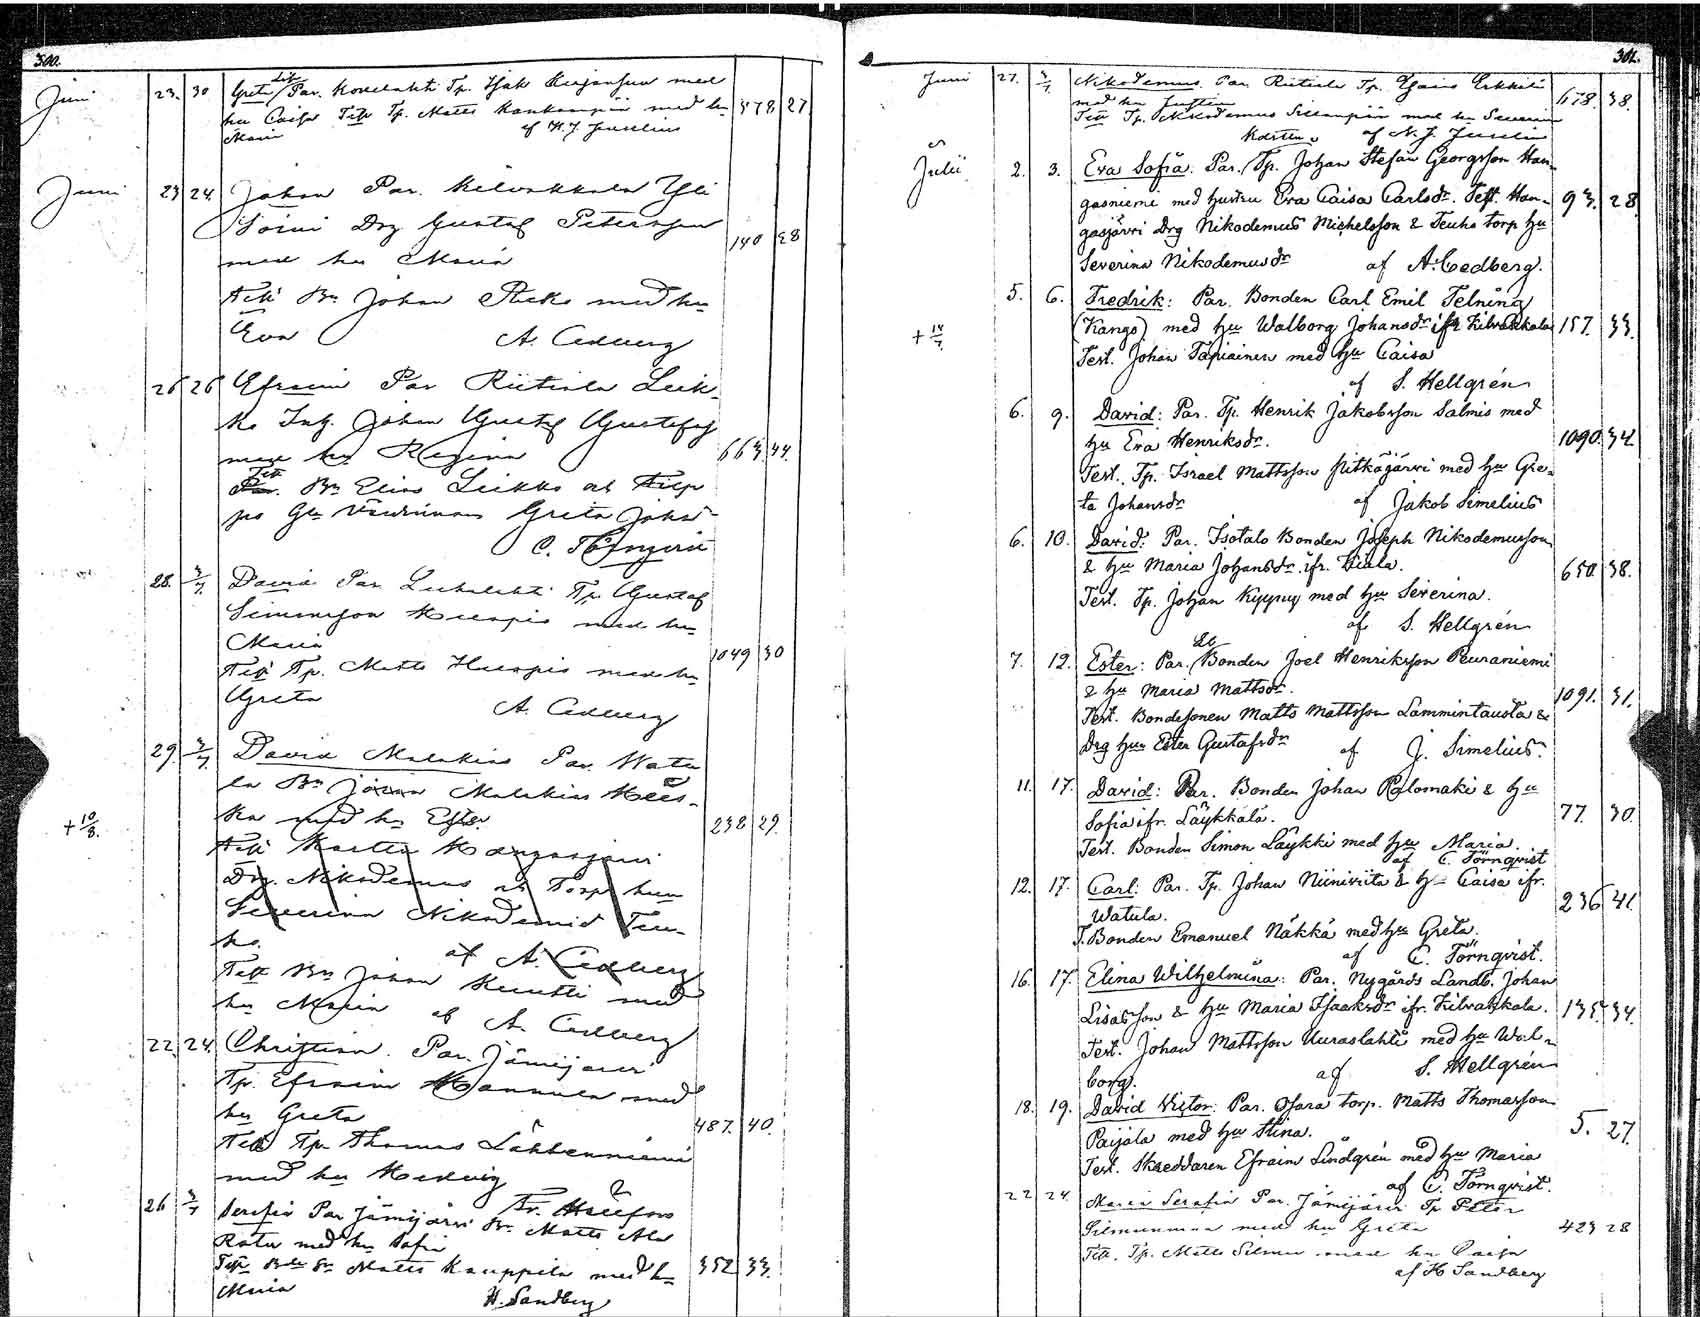 300.
Juni 23. 30 Greta Lis Par. Kovelahti Tp. Isak Kejonsson med
hu Caisa Test Tp. Matts Kankaanpää med hu 378 27
Maria af N. J. Juselius
Juni 23 24. Johan Par. Kilvakkala Yli
Soini Drg Gustaf Petersson
med hu Maria 140 28
Test Bn Johan med hu
Eva A. Cedberg
26 26 Efraim Par Riitiala Leik-
ko Inh. Johan Gustaf Gustafsson
med hu Regina 663. 44.
Test Bn Elias Leikko och Filp
pu Gla Värdinnan Greta Johsdr
C. Törnqvist
28. 3/7 David Par Luhalahti Tp. Gustaf
Simonsson med hu
Maria 1049 30
Test Tp. Matts med hu
Greta A. Cedberg
29. 3/7 David Malakias Par. Watu
la Bn Malakias
ka med hu Ester. 238 29.
+ 10/8.
Test Martin Hangasjärvi
Drg. Nikodemus och Torp. hun
Severina Nikodemid Teu-
ho.
af A. Cedberg
Test Bn Johan med
hu Maria af A. Cedberg
22 24. Christian. Par. Jämijärvi
Tp. Efraim Hannula med
hu Greta 487. 40.
Test Tp. Thomas Lähteenniemi
med hu Hedvig
26 3/7 Serafia Par Jämijärvi Bn. Matts Ala
Rata med hu Sofia
Test Matts Kauppila med hu 352 33.
Maria H. Sandberg
301.
Juni 27. 3/7 Nikodemus. Par Riitiala Tp. Esaias Erkkilä
med hu Justina 678. 38.
Test Tp. Nikodemus Sillanpää med hu Severina
af N. J. Juselius
Julii 2. 3. Eva Sofia. Par. Tp. Johan Stefan Georgsson Han-
gasniemi med hustru Eva Caisa Carlsdr. Test. Han- 93. 28
gasjärvi Drg Nikodemus Michelsson & Teuho torp hu
Severina Nikodemusdr af A. Cedberg.
5. 6. Fredrik: Par. Bonden Carl Emil Telning
+ 14/7. (Kangs) med hu Walborg Johansdr ifr Kilvakkala 157. 33.
Test. Johan Tapiainen med hu Caisa
af S. Hellgrén
6. 9. David: Par. Tp. Henrik Jakobsson Salmis med
hu Eva Henriksdr. 1090. 34.
Test. Tp. Israel Mattsson Pitkäjärvi med hu Gre-
ta Johansdr af Jakob Simelius
6. 10. David: Par. Isotalo Bonden Joseph Nikodemusson
& hu Maria Johansdr. ifr. Tiala. 650. 38.
Test. Tp. Johan Kyypuy med hu Severina.
af S. Hellgrén
7. 12. Ester: Par. Bonden Joel Henriksson Peuraniemi
& hu Maria Mattsdr. 1091. 31.
Test. Bondesonen Matts Mattsson Lammintausta &
Drg hun Ester Gustafsdr af J. Simelius
11. 17. David: Par. Bonden Johan Palomaki & hu
Sofia ifr. Läykkälä. 77. 30.
Test. Bonden Simon Läykki med hu Maria.
af C. Törnqvist
12. 17. Carl: Par. Tp. Johan Niiniviita & hu Caisa ifr.
Watula. 236 41.
T. Bonden Emanuel Näkkä med hu Greta.
af C. Törnqvist.
16. 17. Elina Wilhelmina: Par. Nygårds Landb. Johan
Lisasson & hu Maria Isaaksdr ifr. Kilvakkala. 135. 34.
Test. Johan Mattsson Uuraslahti med hu Wal-
borg. af S. Hellgrén
18. 19. David Victor: Par. Osara torp. Matts Thomasson
Paijala med hu Stina. 5. 27.
Test. Skreddaren Efraim Lindgrén med hu Maria
af C. Törnqvist.
22 24. Maria Serafia Par. Jämijärvi Tp Peter
Silmunmaa med hu Greta 423 28
Test. Tp. Matts Silmu med hu Caisa
af H Sandberg